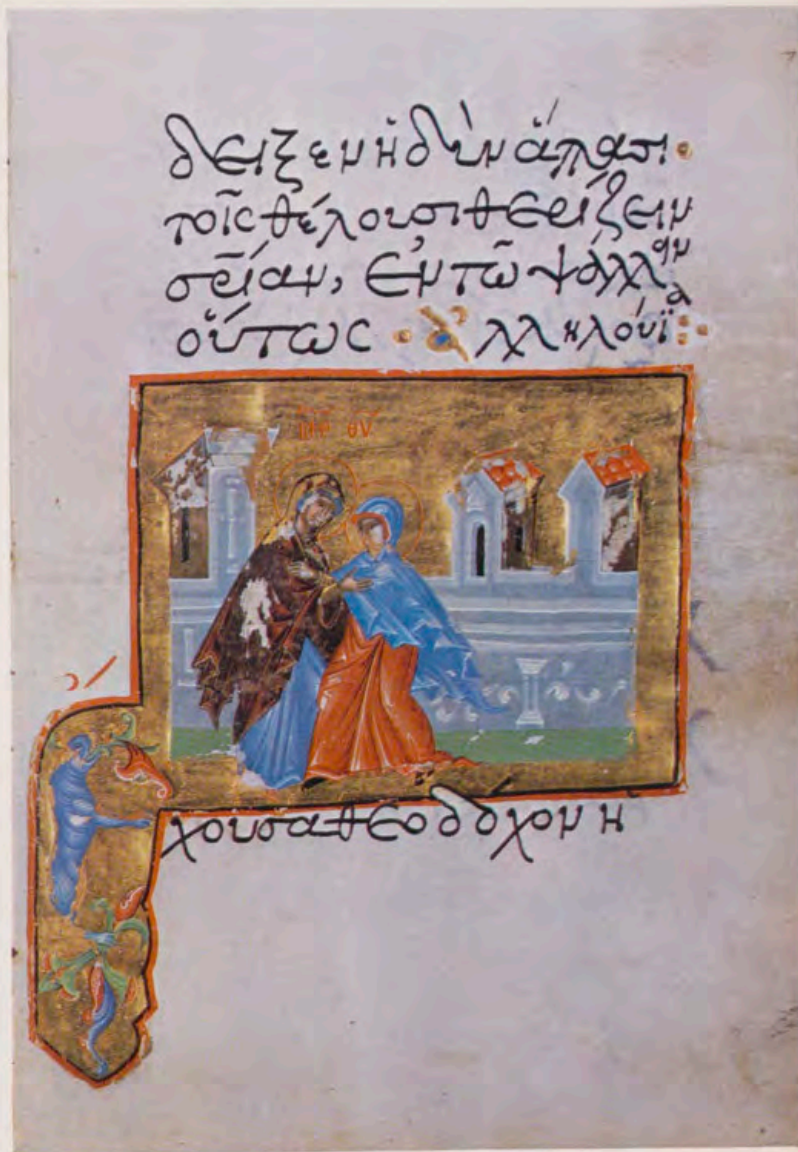 δειξεν ἡδὺν ἅπασι·
τοῖς θέλουσι θερίζειν
σρίαν, ἐν τῶ ψάλλειν
οὕτως · Ἀλληλούϊα:·
ΜΗΡ ΘΥ
Ἔχουσα θεοδόχον ἡ